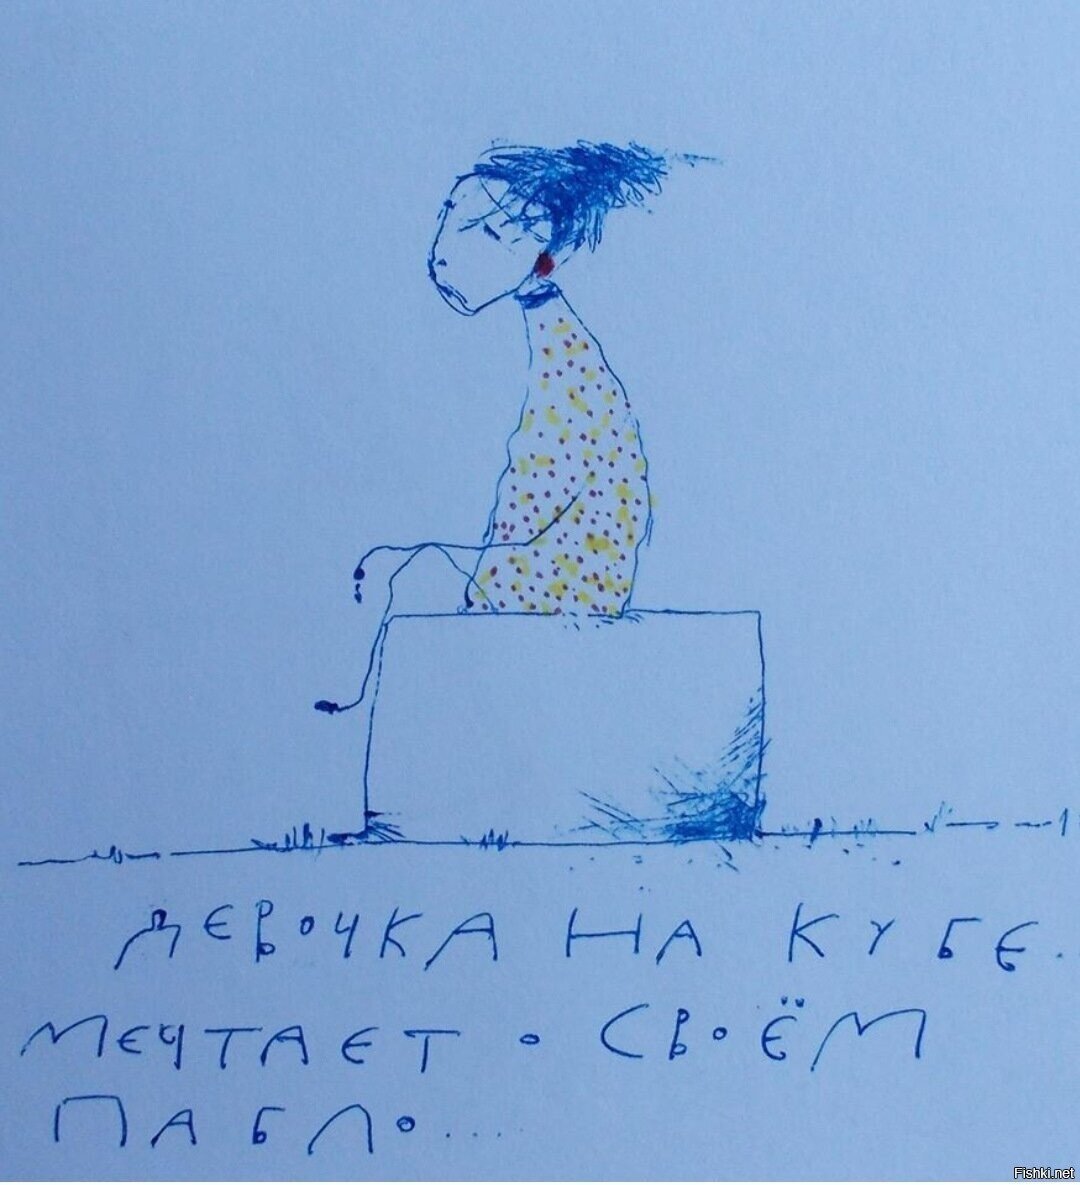 ДЕВОЧКА НА КУБЕ.
МЕЧТАЕТ О СВОЁМ
ПАБЛО....
Fishki.net